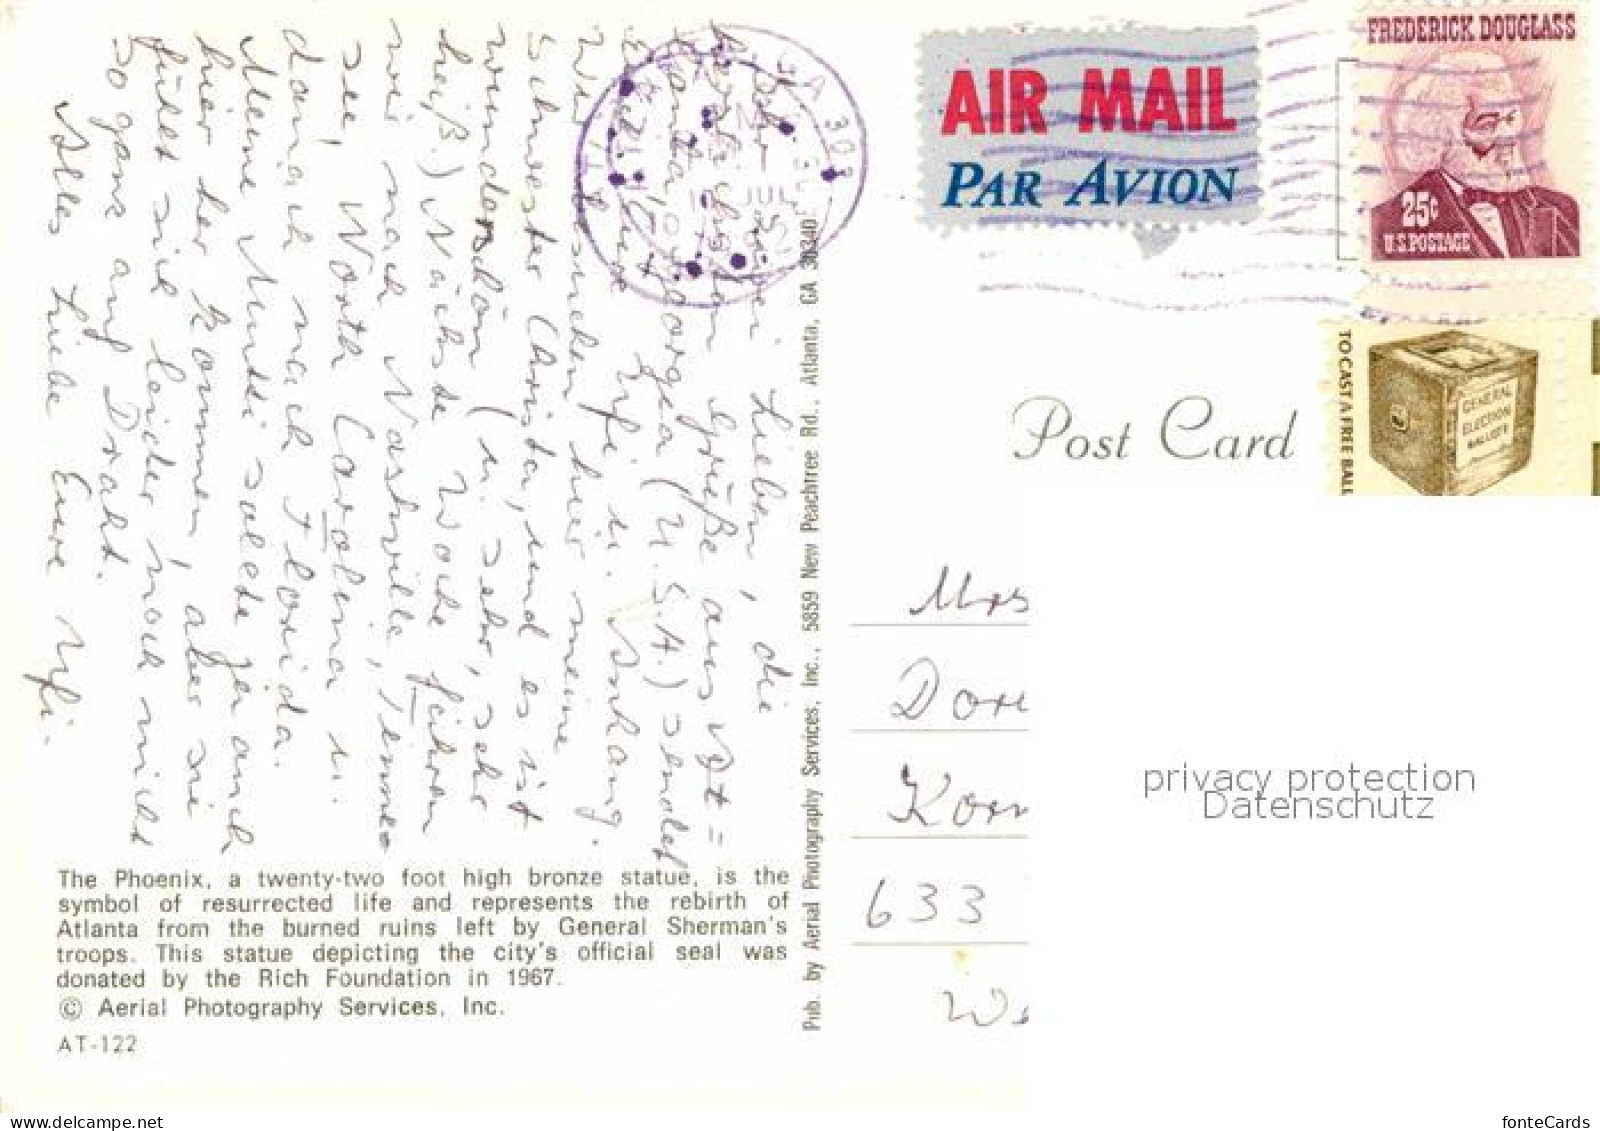 AIR MAIL
PAR AVION
FREDERICK DOUGLASS
25¢
U.S. POSTAGE
TO CAST A FREE BALL
GENERAL
ELECTION
BALLOTS
Post Card
Mrs
633
Lieben, die
Grüße aus At=
Atlanta, Georgea (U.S.A.) sendet
Eure Ufi u. Anhang.
Wir besuchen hier meine
Schwester Christa, und es ist
wunderschön (u. sehr, sehr
heiß.) Nächste Woche fahren
wir nach Nashville, Tennes
see, North Carolina u.
danach nach Florida.
Meine Mutti sollte ja auch
hier her kommen, aber sie
fühlt sich leider noch nicht
so ganz auf Draht.
Alles Liebe Eure Ufi.
The Phoenix, a twenty-two foot high bronze statue, is the
symbol of resurrected life and represents the rebirth of
Atlanta from the burned ruins left by General Sherman's
troops. This statue depicting the city's official seal was
donated by the Rich Foundation in 1967.
© Aerial Photography Services, Inc.
AT-122
Pub. by Aerial Photography Services, Inc., 5859 New Peachtree Rd., Atlanta, GA 30340
privacy protection
Datenschutz
The Phoenix.com
fonteCards